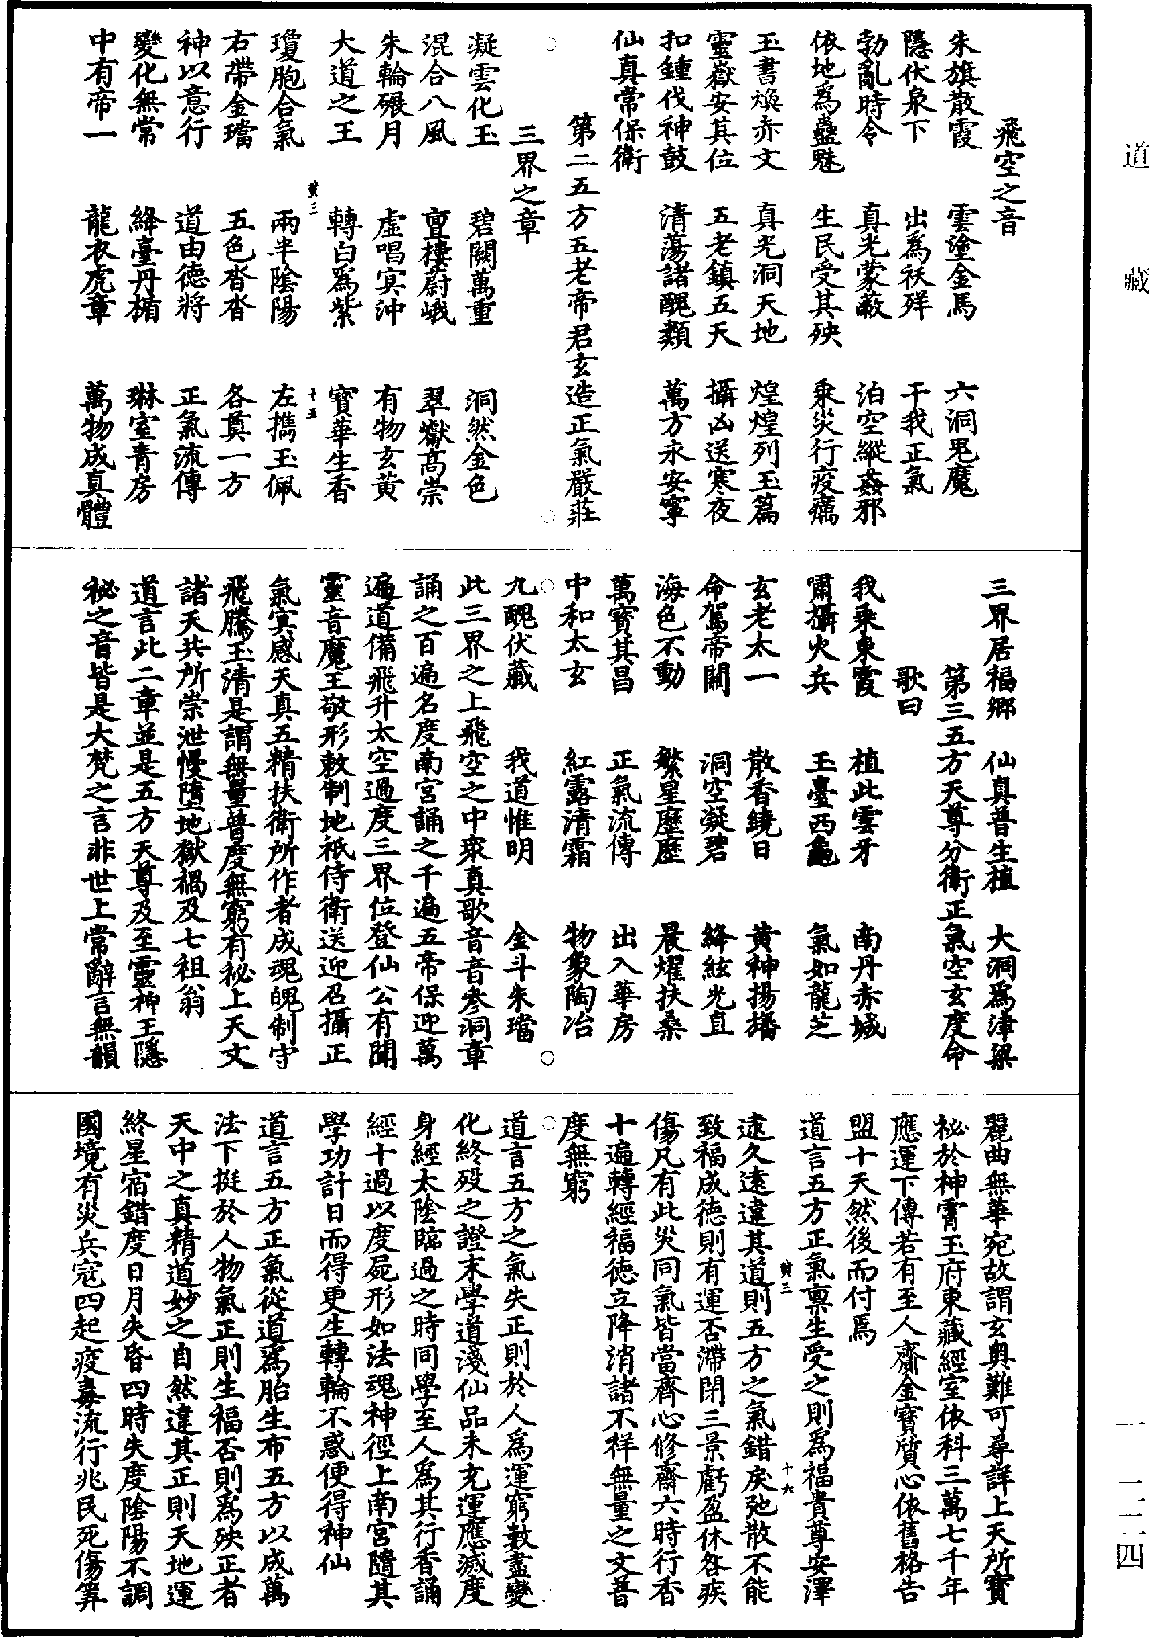 道藏
飛空之音
朱旗散霞　雲塗金馬　六洞鬼魔
隱伏泉下　出為祅殃　干我正氣
勃亂時令　真光蒙蔽　泊空縱姦邪
依地為蠱魅　生民受其殃　乘災行疫癘
玉書煥赤文　真光洞天地　煌煌列玉篇
靈嶽安其位　五老鎮五天　攝凶送寒夜
扣鍾伐神鼓　清蕩諸醜類　萬方永安寧
仙真常保衛
第二五方五老帝君玄造正氣嚴莊
三界之章
凝雲化玉　碧闕萬重　洞然金色
混合八風　亶棲蔚峨　翠嶽高崇
朱輪礙月　虛唱冥沖　有物玄黃
大道之王　轉白為紫　寶華生香
對三　十五
瓊胞合氣　兩半陰陽　左擕玉佩
右帶金璫　五色沓沓　各奠一方
神以意行　道由德將　正氣流傳
變化無常　絳臺丹楯　琳室青房
中有帝一　龍衣虎章　萬物成真體
三界居福鄉　仙真普生植　大洞為津梁
第三五方天尊分衛正氣空玄度命
歌曰
我乘東霞　植此雲牙　南丹赤城
嘯攝火兵　玉臺西龜　氣如龍芝
玄老太一　散香繞日　黃神揚播
命駕帝關　洞空凝碧　絳絃光直
海色不動　繁星歷歷　晨燿扶桑
萬寶其昌　正氣流傳　出入華房
中和太玄　紅露清霜　物象陶冶
九醜伏藏　我道惟明　金斗朱璫
此三界之上飛空之中衆真歌音音參洞章
誦之百遍名度南宮誦之千遍五帝保迎萬
遍道備飛升太空過度三界位登仙公有聞
靈音魔王敬形敕制地祇侍衛送迎召攝正
氣冥感天真五精扶衛所作者成魂魄制守
飛騰玉清是謂無量普度無窮有祕上天文
諸天共所崇泄慢墮地獄禍及七祖翁
道言此二章並是五方天尊及至靈神王隱
祕之音皆是大梵之言非世上常辭言無韻
麗曲無華宛故謂玄奧難可尋詳上天所寶
祕於神霄玉府東藏經室依科三萬七千年
應運下傳若有至人齎金寶質心依舊格告
盟十天然後而付焉
道言五方正氣禀生受之則為福貴尊安澤
對三　十六
逮久遠違其道則五方之氣錯戾弛散不能
致福成德則有運否滯閉三景虧盈休咎疾
傷凡有此災同氣皆當齊心修齋六時行香
十遍轉經福德立降消諸不祥無量之文普
度無窮
道言五方之氣失正則於人為運窮數盡變
化終殁之證末學道淺仙品未充運應滅度
身經太陰臨過之時同學至人為其行香誦
經十過以度屍形如法魂神徑上南宮隨其
學功計日而得更生轉輪不惑便得神仙
道言五方正氣從道為胎生布五方以成萬
法下挺於人物氣正則生福否則為殃正者
天中之真精道妙之自然違其正則天地運
終星宿錯度日月失昏四時失度陰陽不調
國境有災兵寇四起疫毒流行兆民死傷筭
一一二四